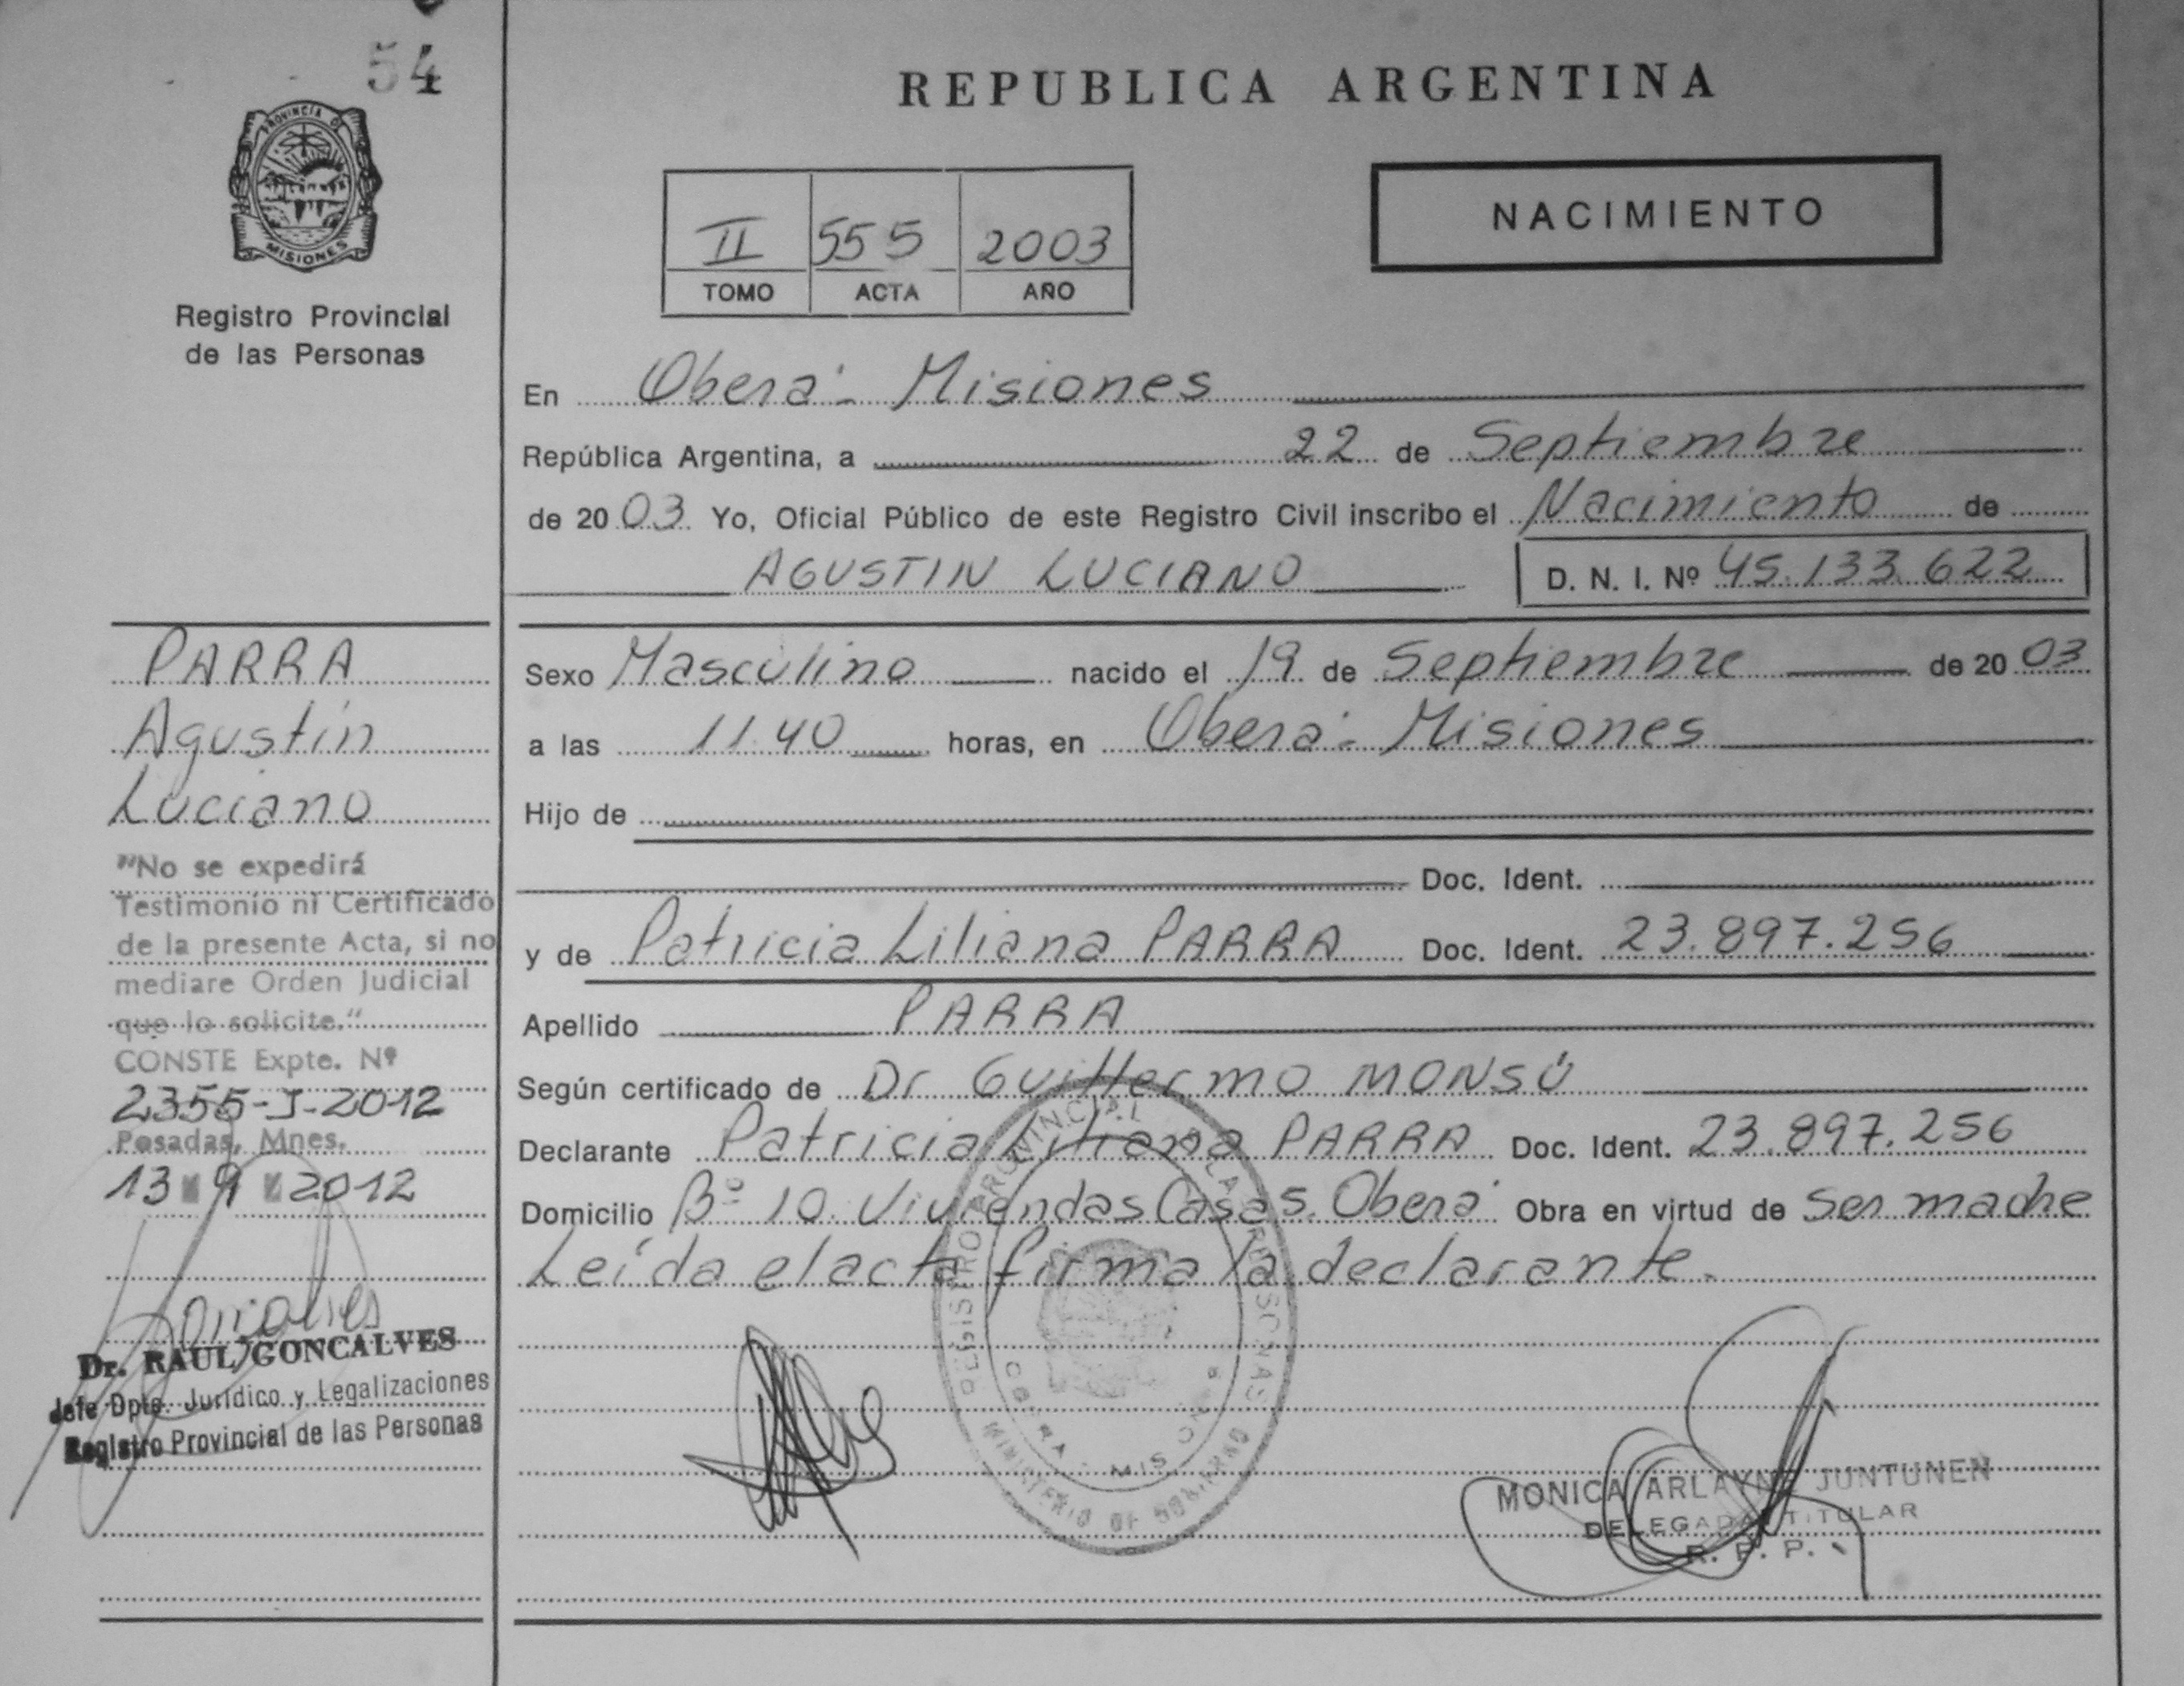 54
PROVINCIA DE
MISIONES
Registro Provincial
de las Personas
REPUBLICA ARGENTINA
II 555 2003
TOMO ACTA AÑO
NACIMIENTO
En Oberá - Misiones
República Argentina, a 22 de Septiembre
de 2003 Yo, Oficial Público de este Registro Civil inscribo el Nacimiento de
AGUSTIN LUCIANO D. N. I. Nº 45.133.622
Sexo Masculino nacido el 19 de Septiembre de 2003
a las 11.40 horas, en Oberá - Misiones
Hijo de
Doc. Ident.
y de Patricia Liliana PARRA Doc. Ident. 23.897.256
Apellido PARRA
Según certificado de Dr Guillermo MONSÚ
Declarante Patricia Liliana PARRA Doc. Ident. 23.897.256
Domicilio Bº 10 Viviendas Casa 5. Oberá Obra en virtud de Ser madre
Leída el acta firma la declarante.
PARRA
Agustín
Luciano
"No se expedirá
Testimonio ni Certificado
de la presente Acta, si no
mediare Orden Judicial
que lo solicite."
CONSTE Expte. Nº
2355-J-2012
Posadas, Mnes.
13 9 2012
Goncalves
Dr. RAUL GONCALVES
Jefe Dpto. Jurídico y Legalizaciones
Registro Provincial de las Personas
REGISTRO PROVINCIAL DE LAS PERSONAS
OBERA - MISIONES
MINISTERIO DE GOBIERNO
MONICA ARLAYNE JUNTUNEN
DELEGADA TITULAR
R. P. P.